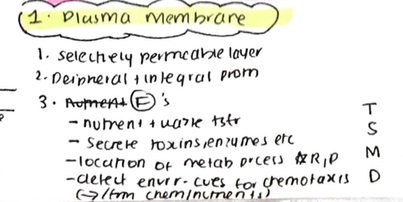 1. Plasma Membrane
1. Selectively permeable layer
2. Peripheral + integral protn
3. Nutrient F's
- nutrient + waste tstr
- Secrete toxins, enzymes etc
- location of metab prcess R, P
- detect envir. cues for chemotaxis
(→/frm chem)
T
S
M
D